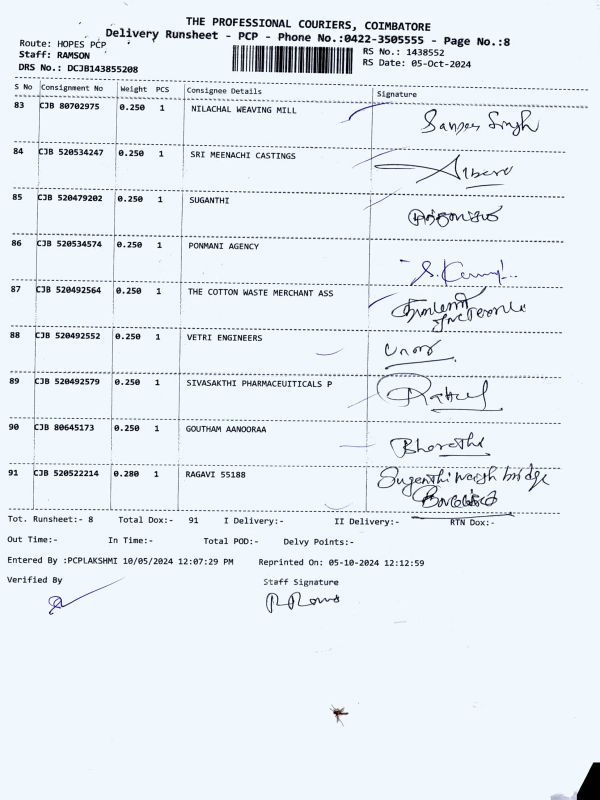 THE PROFESSIONAL COURIERS, COIMBATORE
Delivery Runsheet - PCP - Phone No.:0422-3505555 - Page No.:8
Route: HOPES PCP RS No.: 1438552
Staff: RAMSON RS Date: 05-Oct-2024
DRS No.: DCJB143855208
S No Consignment No Weight PCS Consignee Details Signature
83 CJB 80702975 0.250 1 NILACHAL WEAVING MILL Sanjeev Singh
84 CJB 520534247 0.250 1 SRI MEENACHI CASTINGS
85 CJB 520479202 0.250 1 SUGANTHI
86 CJB 520534574 0.250 1 PONMANI AGENCY
87 CJB 520492564 0.250 1 THE COTTON WASTE MERCHANT ASS
88 CJB 520492552 0.250 1 VETRI ENGINEERS
89 CJB 520492579 0.250 1 SIVASAKTHI PHARMACEUITICALS P
90 CJB 80645173 0.250 1 GOUTHAM AANOORAA Bharathi
91 CJB 520522214 0.280 1 RAGAVI 55188 Sugenthi weigh bridge
Tot. Runsheet:- 8 Total Dox:- 91 I Delivery:- II Delivery:- RTN Dox:-
Out Time:- In Time:- Total POD:- Delvy Points:-
Entered By :PCPLAKSHMI 10/05/2024 12:07:29 PM Reprinted On: 05-10-2024 12:12:59
Verified By Staff Signature